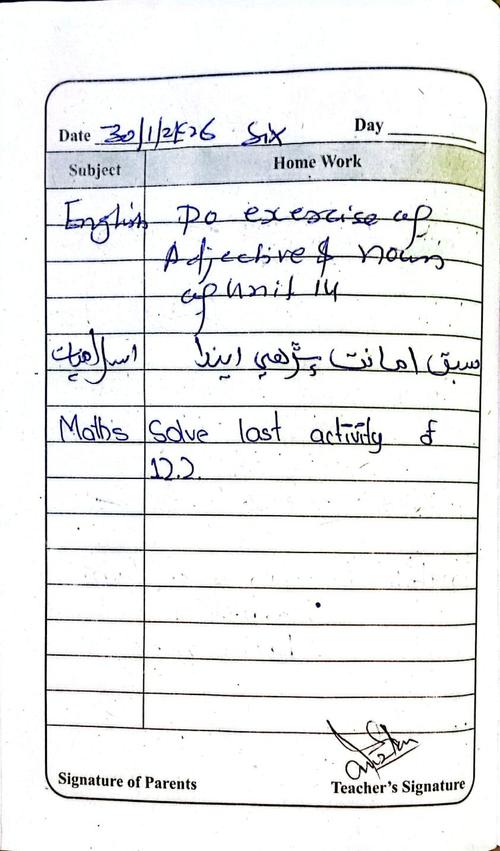 Date 30/1/2026 Six Day
Subject Home Work
English Do exercise of
Adjective & nouns
of Unit 14
اسلاميات سبق امانت پڙهي ايندا
Maths Solve last activity of
12.2.
Signature of Parents Teacher's Signature